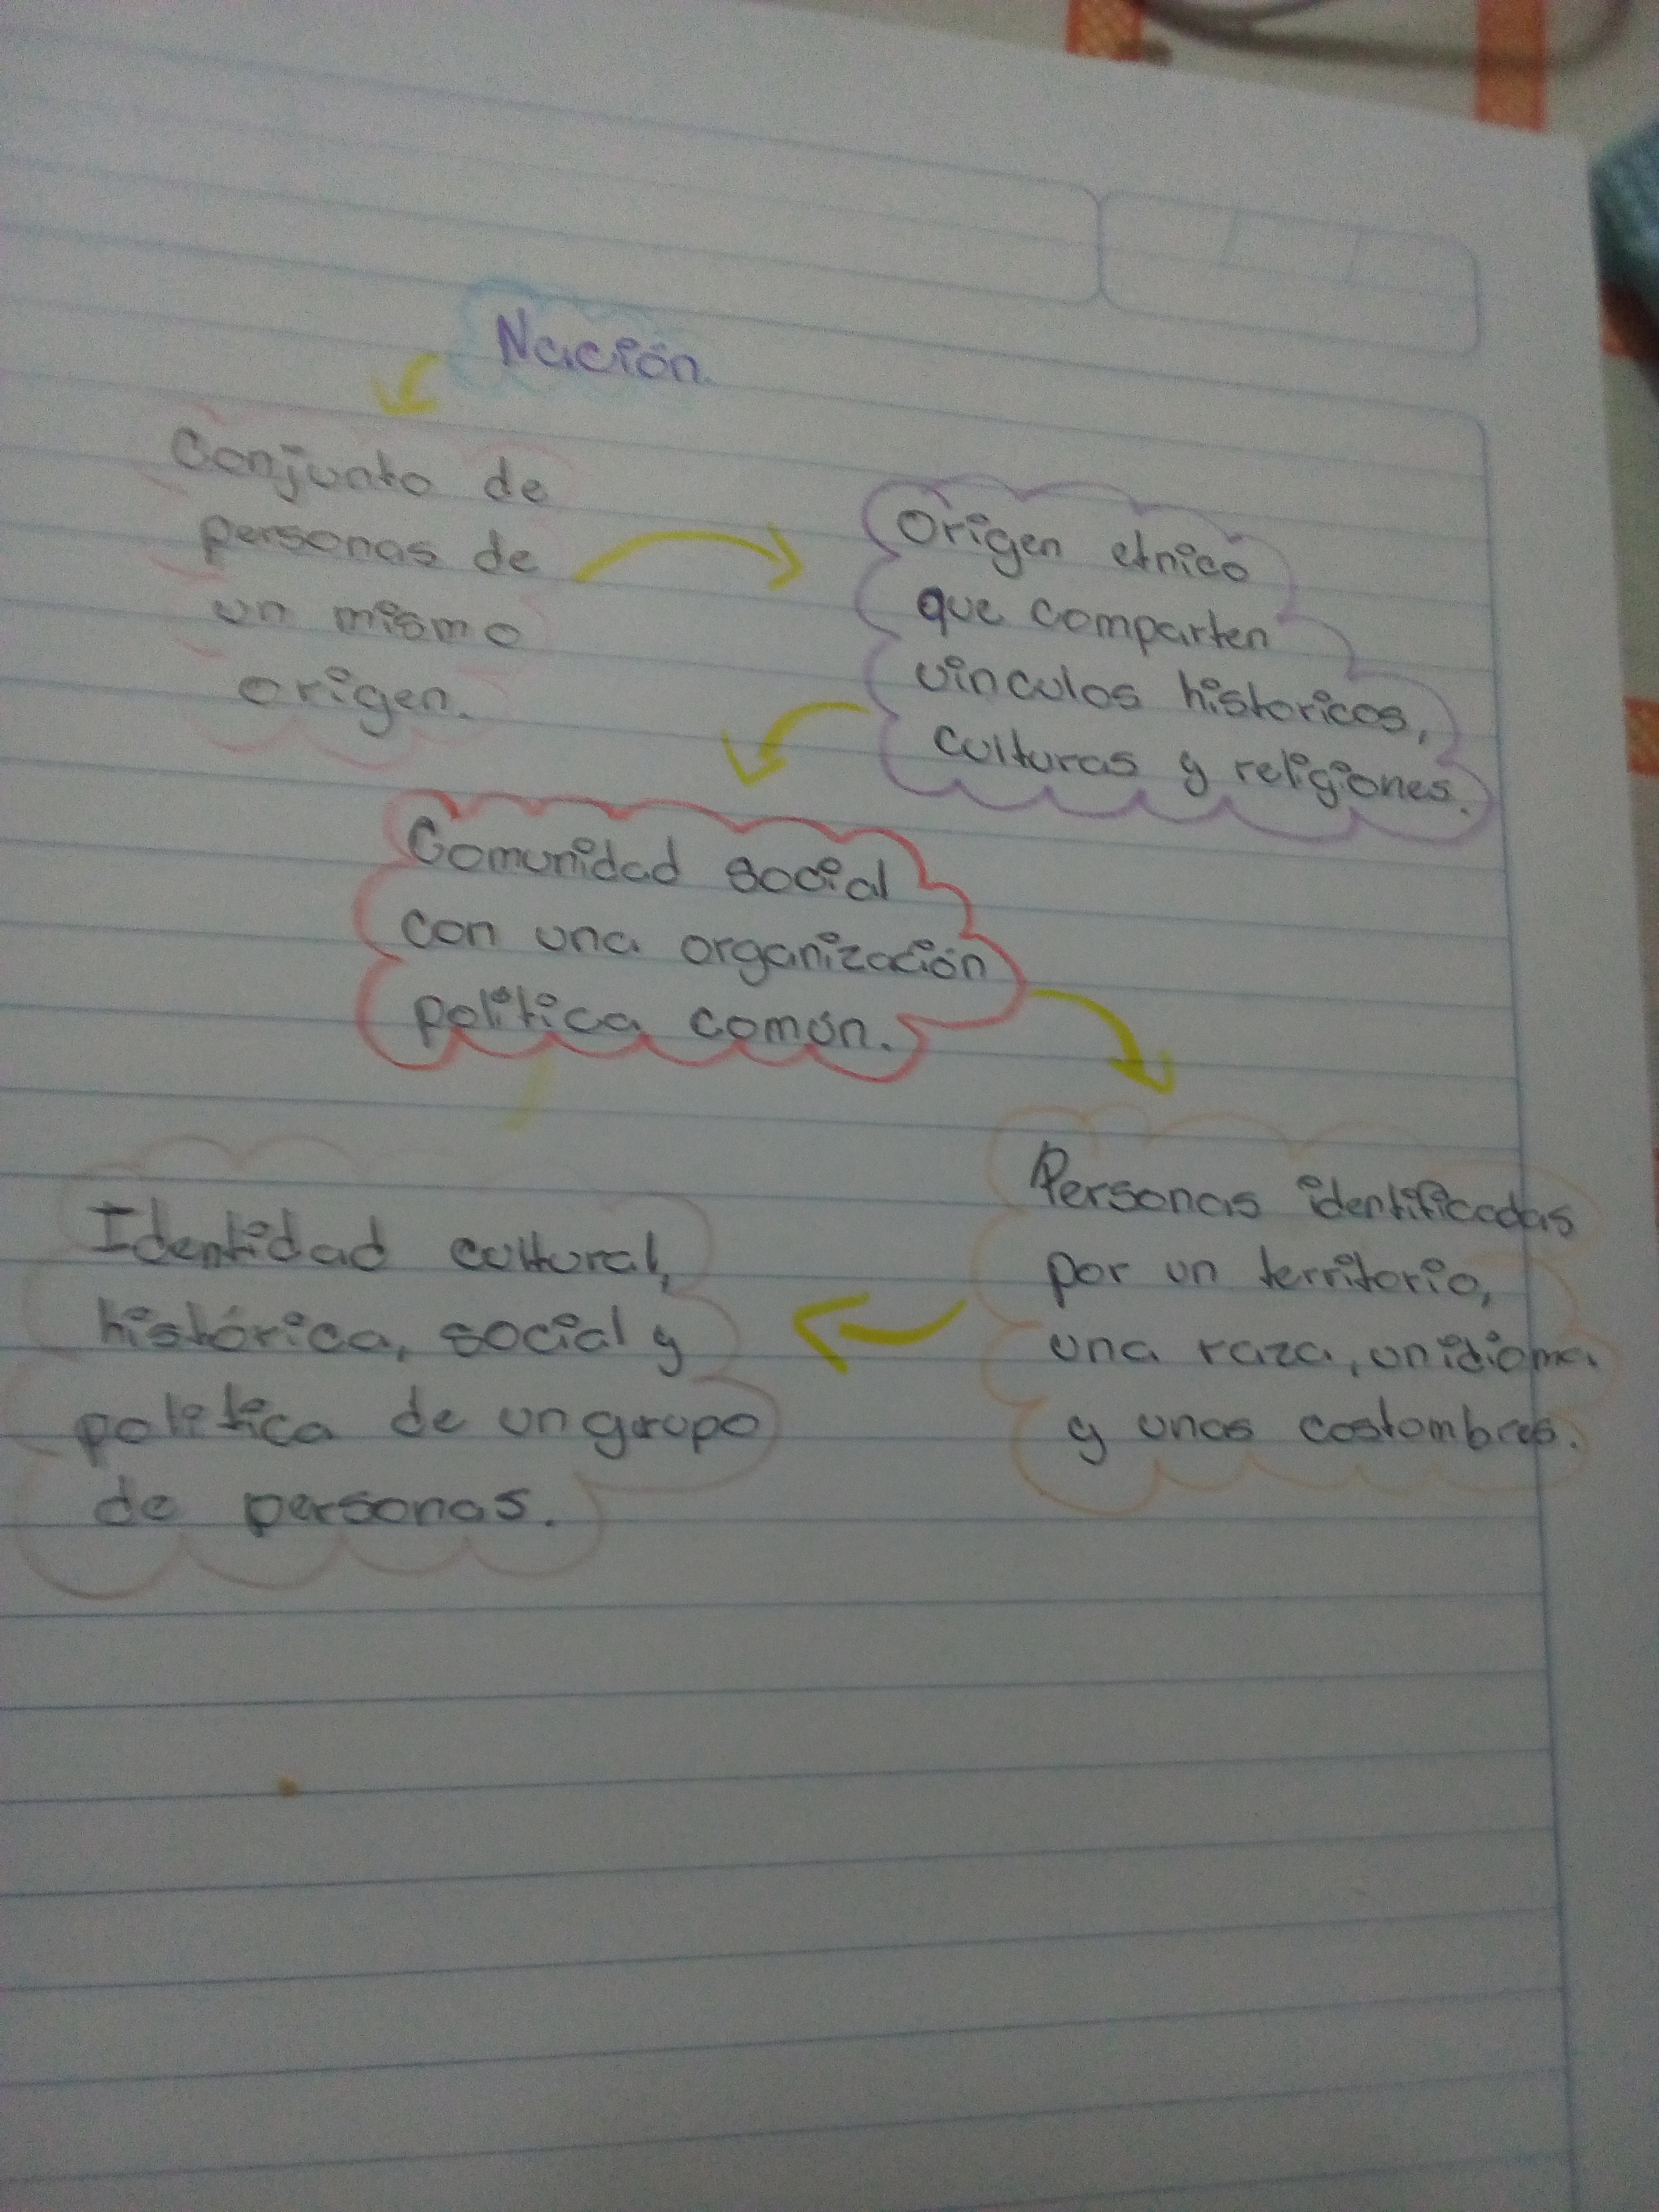 Nación.
Conjunto de
personas de
un mismo
origen.
Origen etnico
que comparten
vinculos historicos,
culturas y religiones.
Comunidad social
con una organización
política común.
Personas identificadas
por un territorio,
una raza, un idioma
y unas costumbres.
Identidad cultural,
histórica, social y
politica de un grupo
de personas.